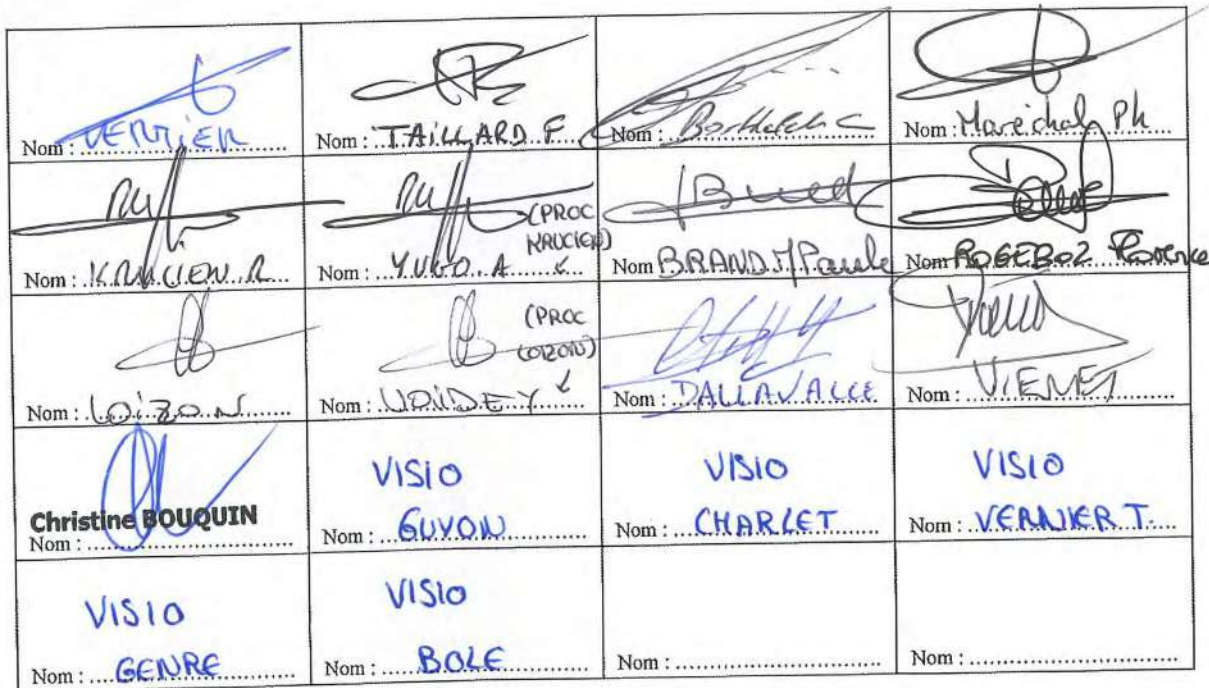 Nom : VERMIER
Nom : TAILLARD F
Nom : Barthelet C
Nom : Maréchal Ph
Nom : KRUCIEN. R
(PROC KRUCIEN)
Nom : YUGO. A
Nom BRAND M Paule
Nom ROGEBOZ Florence
Nom : LOIZON
(PROC LOIZON)
Nom : VOIDEY
Nom : DALLAVALLE
Nom : VIENET
Christine BOUQUIN
Nom :
VISIO
Nom : GUYON
VISIO
Nom : CHARLET
VISIO
Nom : VERNIER T.
VISIO
Nom : GENRE
VISIO
Nom : BOLE
Nom :
Nom :